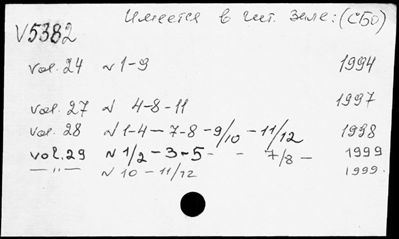 Имеется в чит. зале: (СБО)
V5382
vol. 24 N 1-9 1994
vol. 27 N 4-8-11 1997
vol. 28 N 1-4 — 7-8 -9/10 - 11/12 1998
vol. 29 N 1/2 - 3 - 5 - - 7/8 - 1999
— " — N 10 - 11/12 1999.